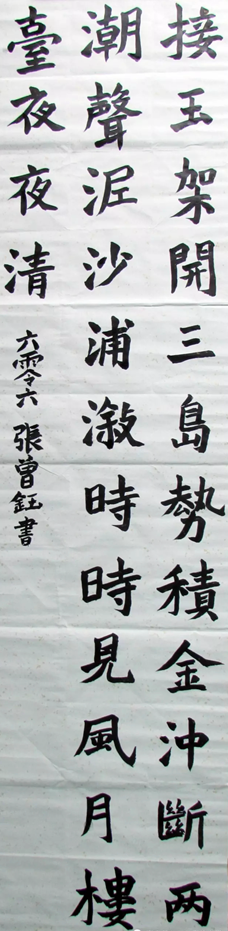 接玉架開三島勢積金沖斷两
潮聲泥沙浦漵時時見風月樓
臺夜夜清
六零六張曾鈺書